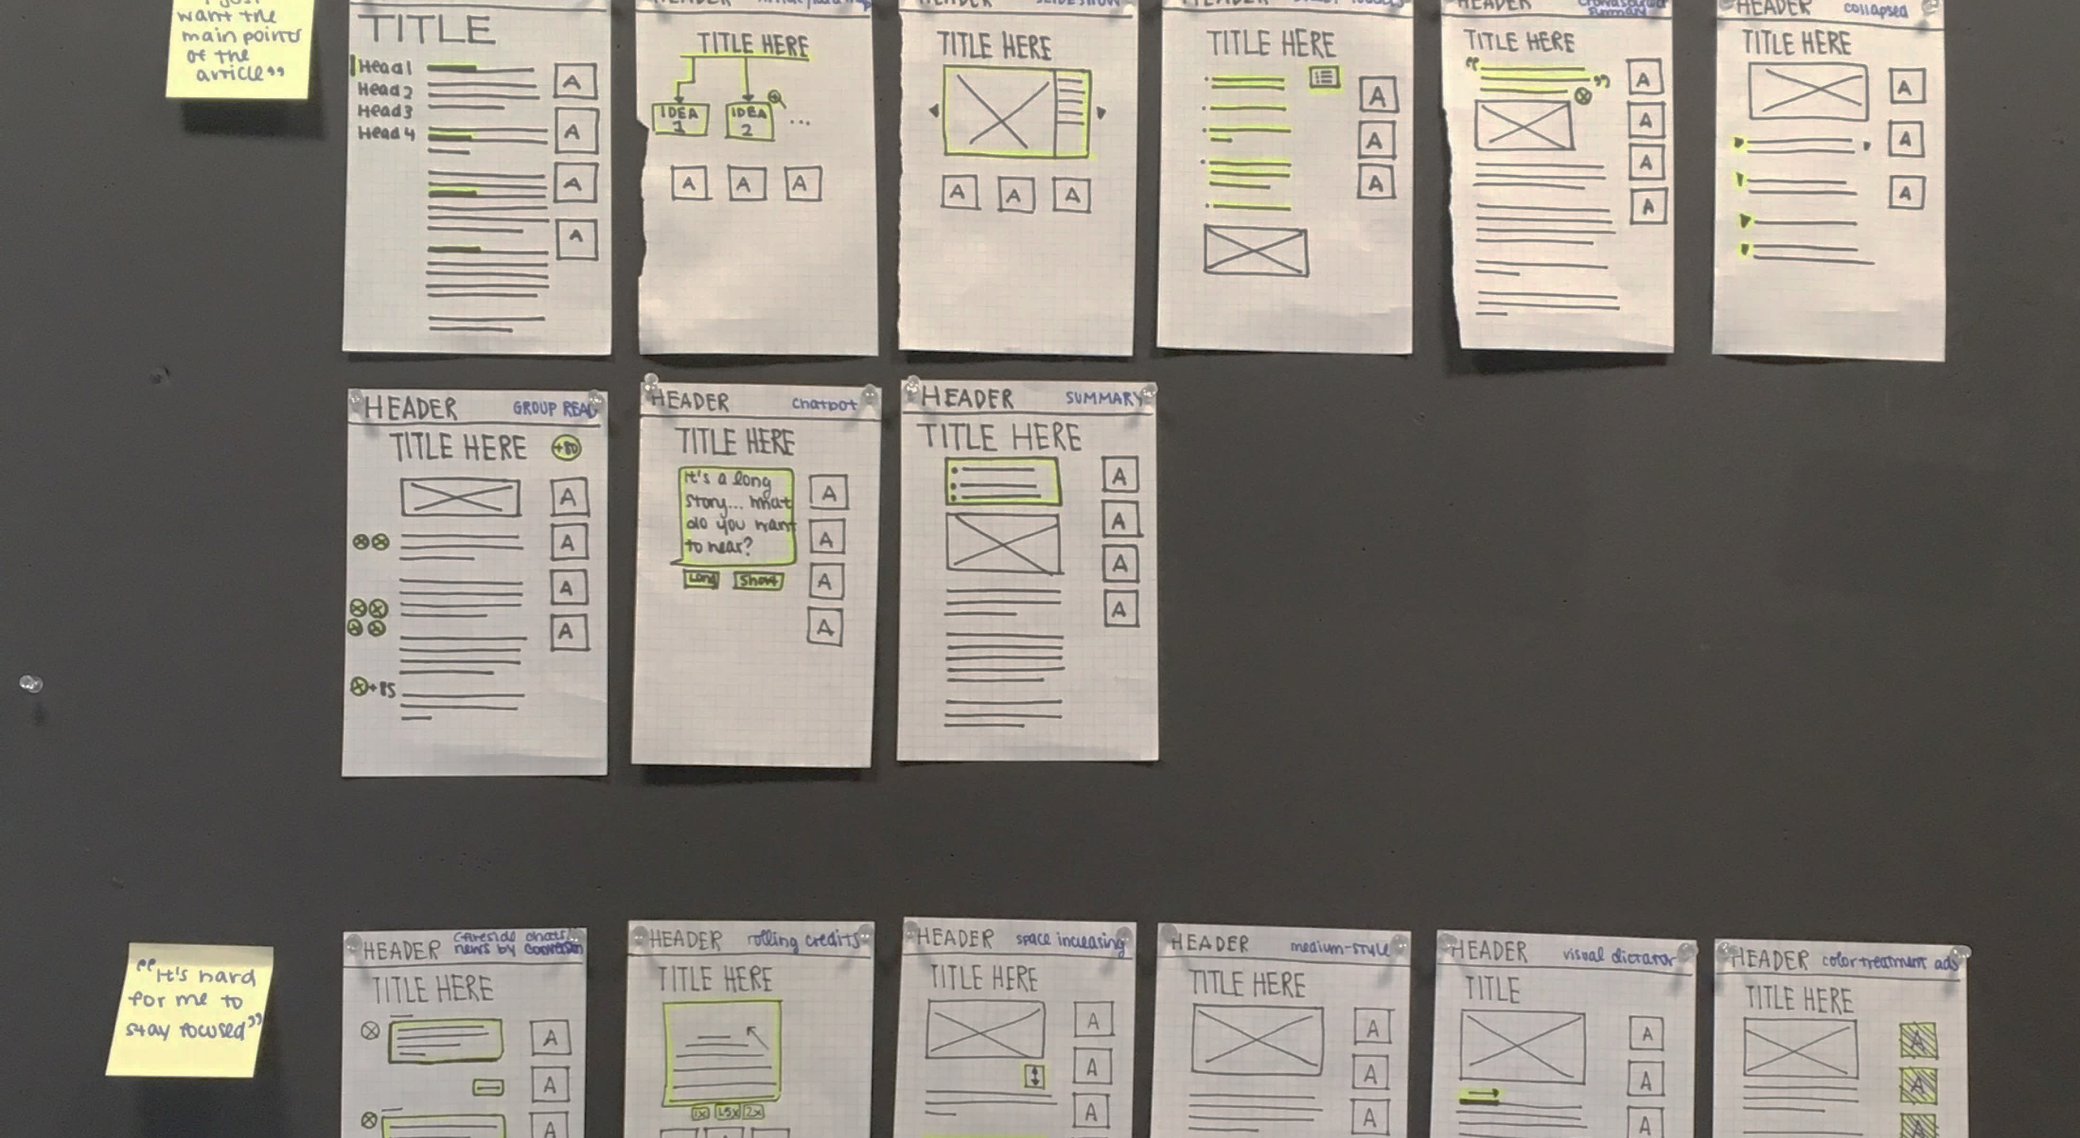 want the
main points
of the
article”
TITLE
Head 1
Head 2
Head 3
Head 4
A
A
A
A
HEADER
TITLE HERE
IDEA
1
IDEA
2
...
A
A
A
HEADER
SLIDESHOW
TITLE HERE
A
A
A
HEADER
TITLE HERE
A
A
A
HEADER
summary
TITLE HERE
“
”
A
A
A
A
HEADER
collapsed
TITLE HERE
A
A
A
HEADER
GROUP READ
TITLE HERE
+80
A
A
A
A
+85
HEADER
chatbot
TITLE HERE
It's a long
story... what
do you want
to hear?
Long
Short
A
A
A
A
HEADER
SUMMARY
TITLE HERE
A
A
A
A
“It's hard
for me to
stay focused”
HEADER
fireside chats
news by
TITLE HERE
A
A
A
HEADER
rolling credits
TITLE HERE
1x
1.5x
2x
HEADER
space increasing
TITLE HERE
A
A
A
HEADER
medium-style
TITLE HERE
A
A
A
HEADER
visual dictator
TITLE
A
A
A
HEADER
color treatment ads
TITLE HERE
A
A
A